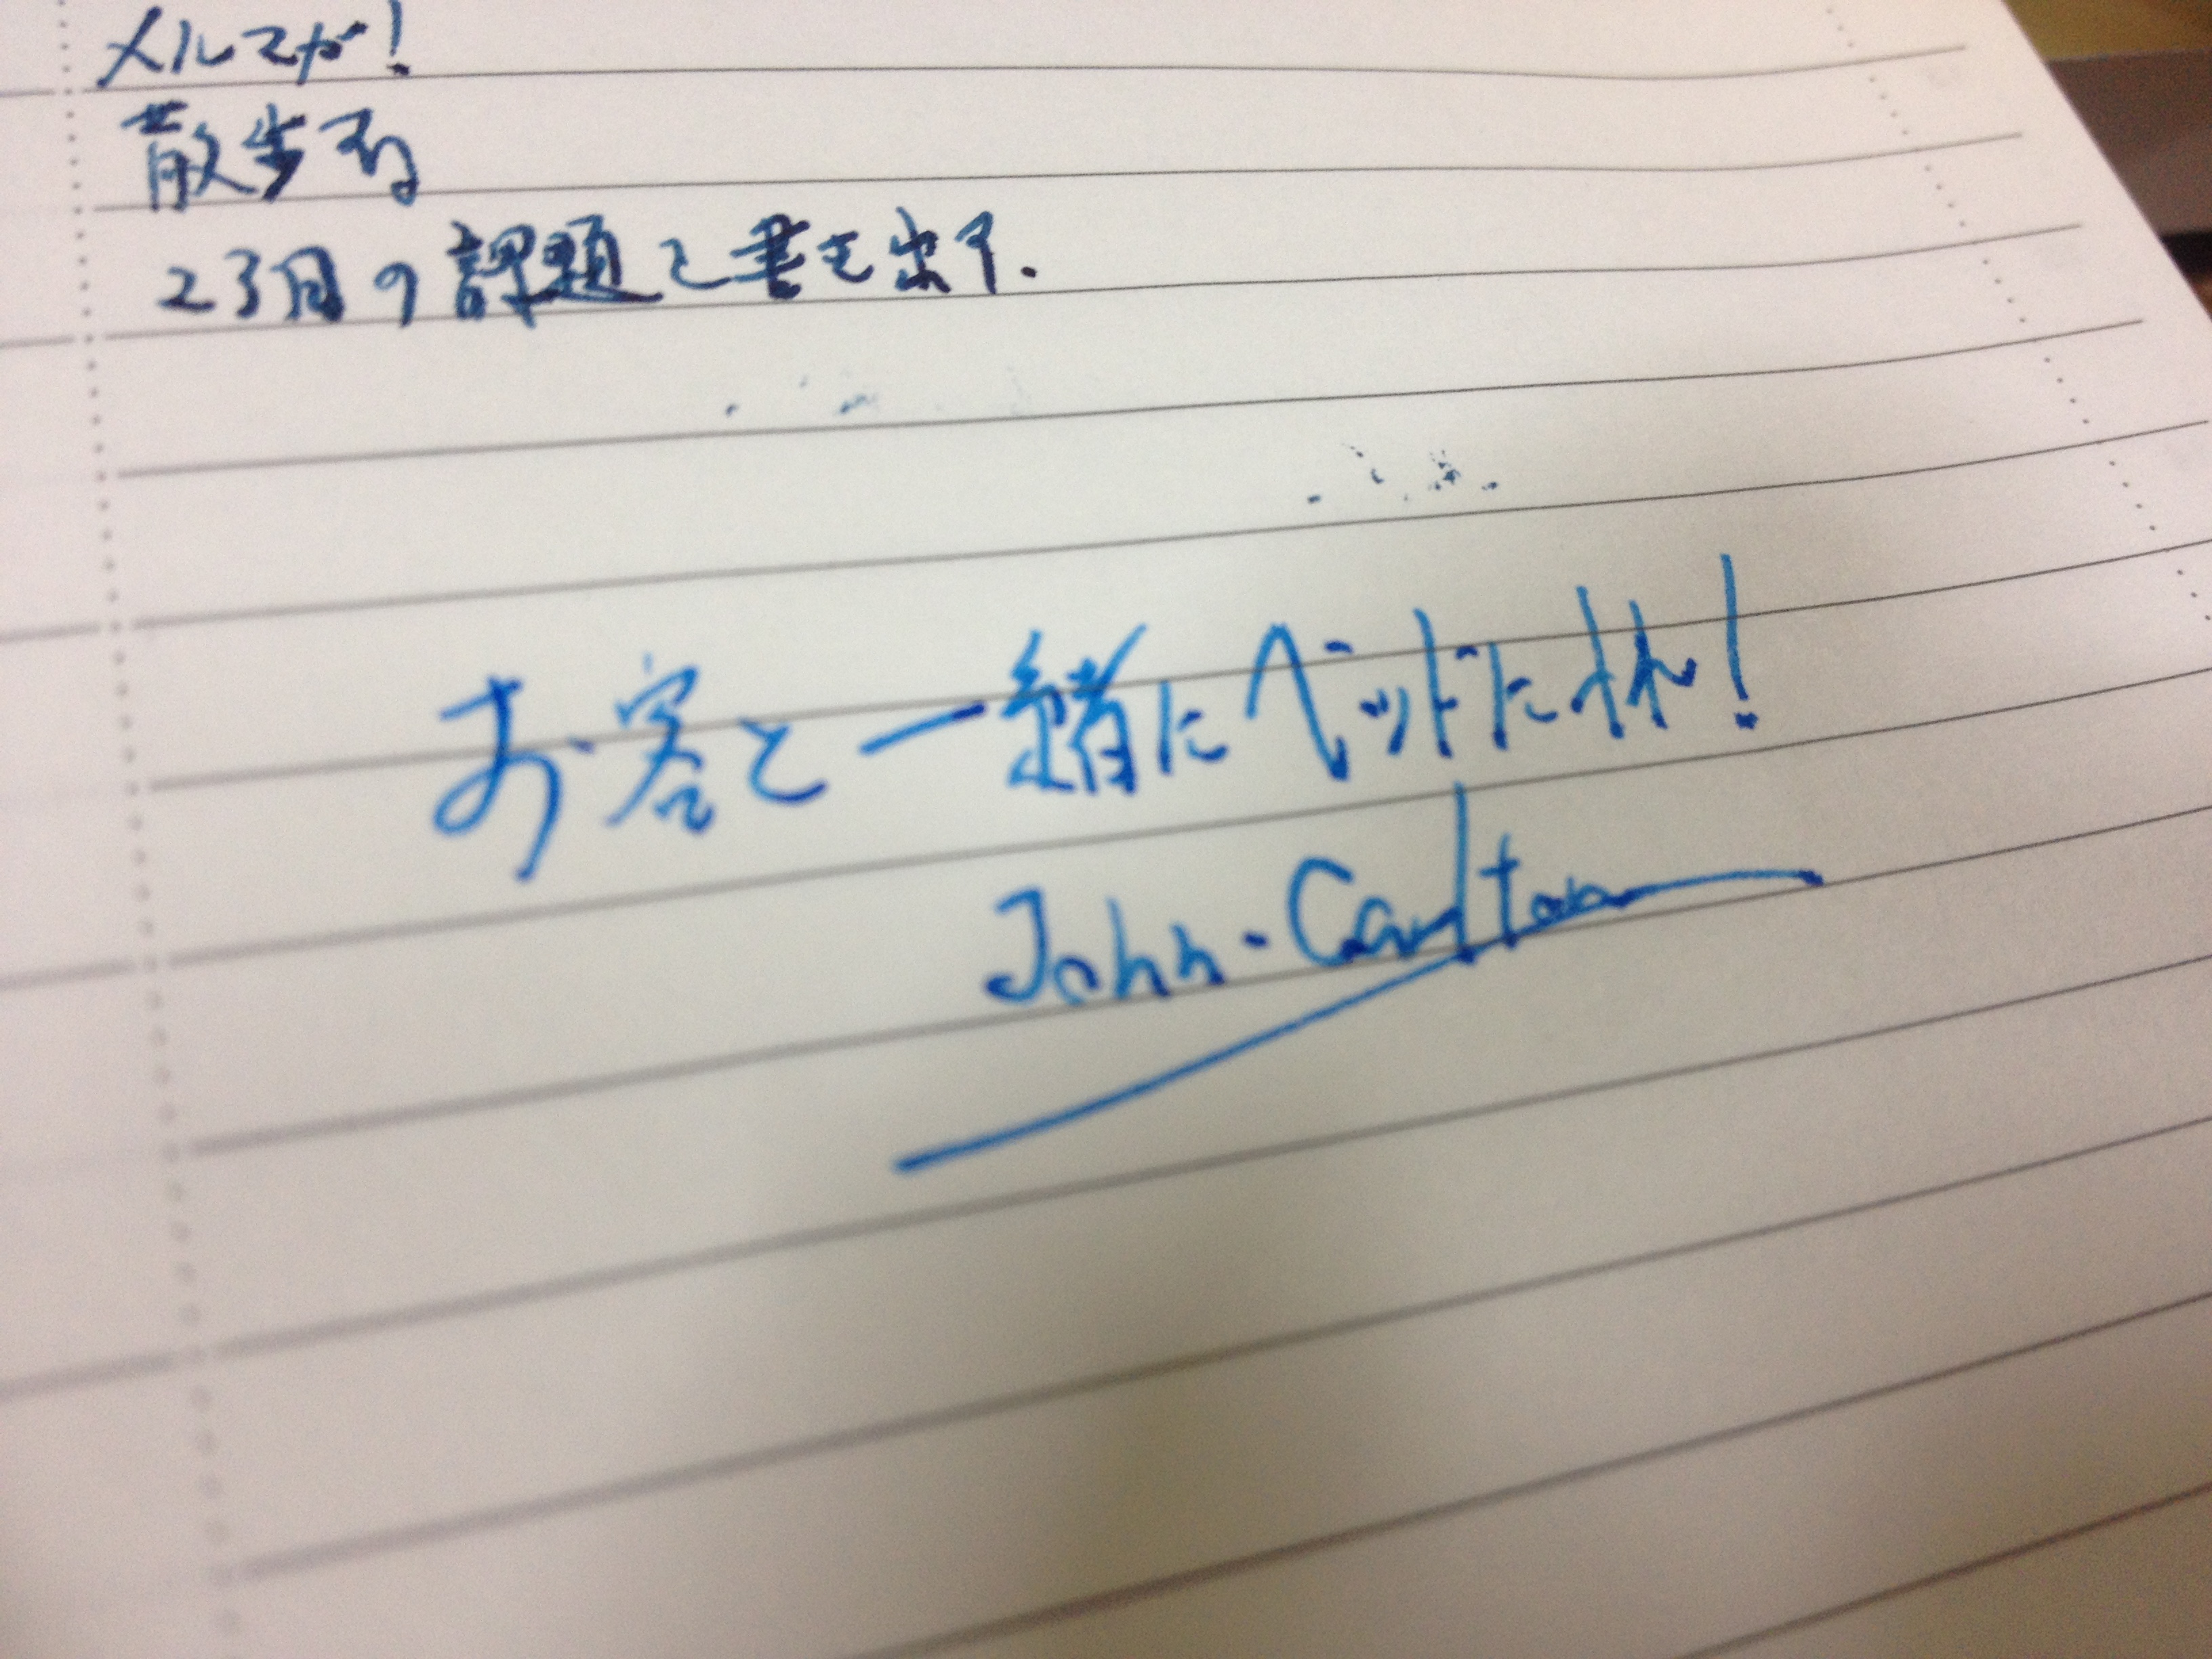 メルマガ!
散歩する
23月の課題を書き出す.
お客と一緒にベッドに入れ!
John・Carlton